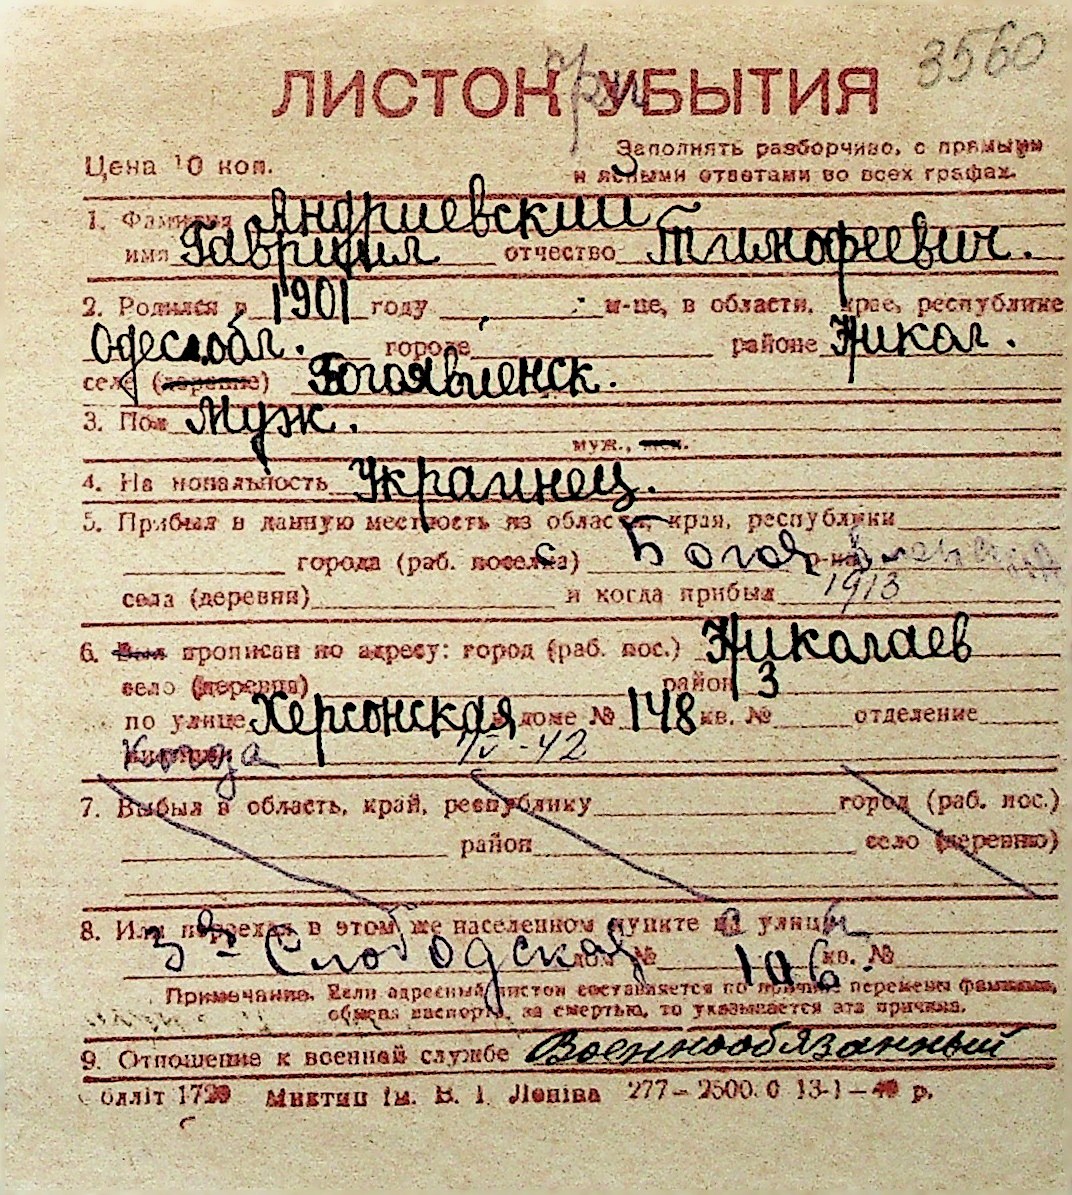 3560
ЛИСТОК при УБЫТИЯ
Цена 10 коп.
Заполнять разборчиво, с прямыми
и ясными ответами во всех графах.
1. Фамилия Андриевский
имя Гавриил отчество Тимофеевич.
2. Родился в 1901 году м-це, в области, крае, республике
Одес.обл. городе районе Никол.
селе (деревне) Богоявленск.
3. Пол Муж.
муж., жен.
4. Национальность Украинец.
5. Прибыл в данную местность из области, края, республики
города (раб. поселка) с Богоявленска р-на
села (деревни) и когда прибыл 1913
6. Был прописан по адресу: город (раб. пос.) Николаев
село (деревня) район 3
по улице Херсонская в доме № 148 кв. № отделение
когда IV-42
7. Выбыл в область, край, республику город (раб. пос.)
район село (деревню)
8. Или переехал в этом же населенном пункте на улицу
3я Слободская дом № 106 кв. №
Примечание. Если адресный листок составляется по причине перемены фамилии,
обмена паспорта, за смертью, то указывается эта причина.
9. Отношение к военной службе Военнообязанный
облліт 1729 Миктип ім. В. І. Леніна 277-2500.0 13-1-40 р.